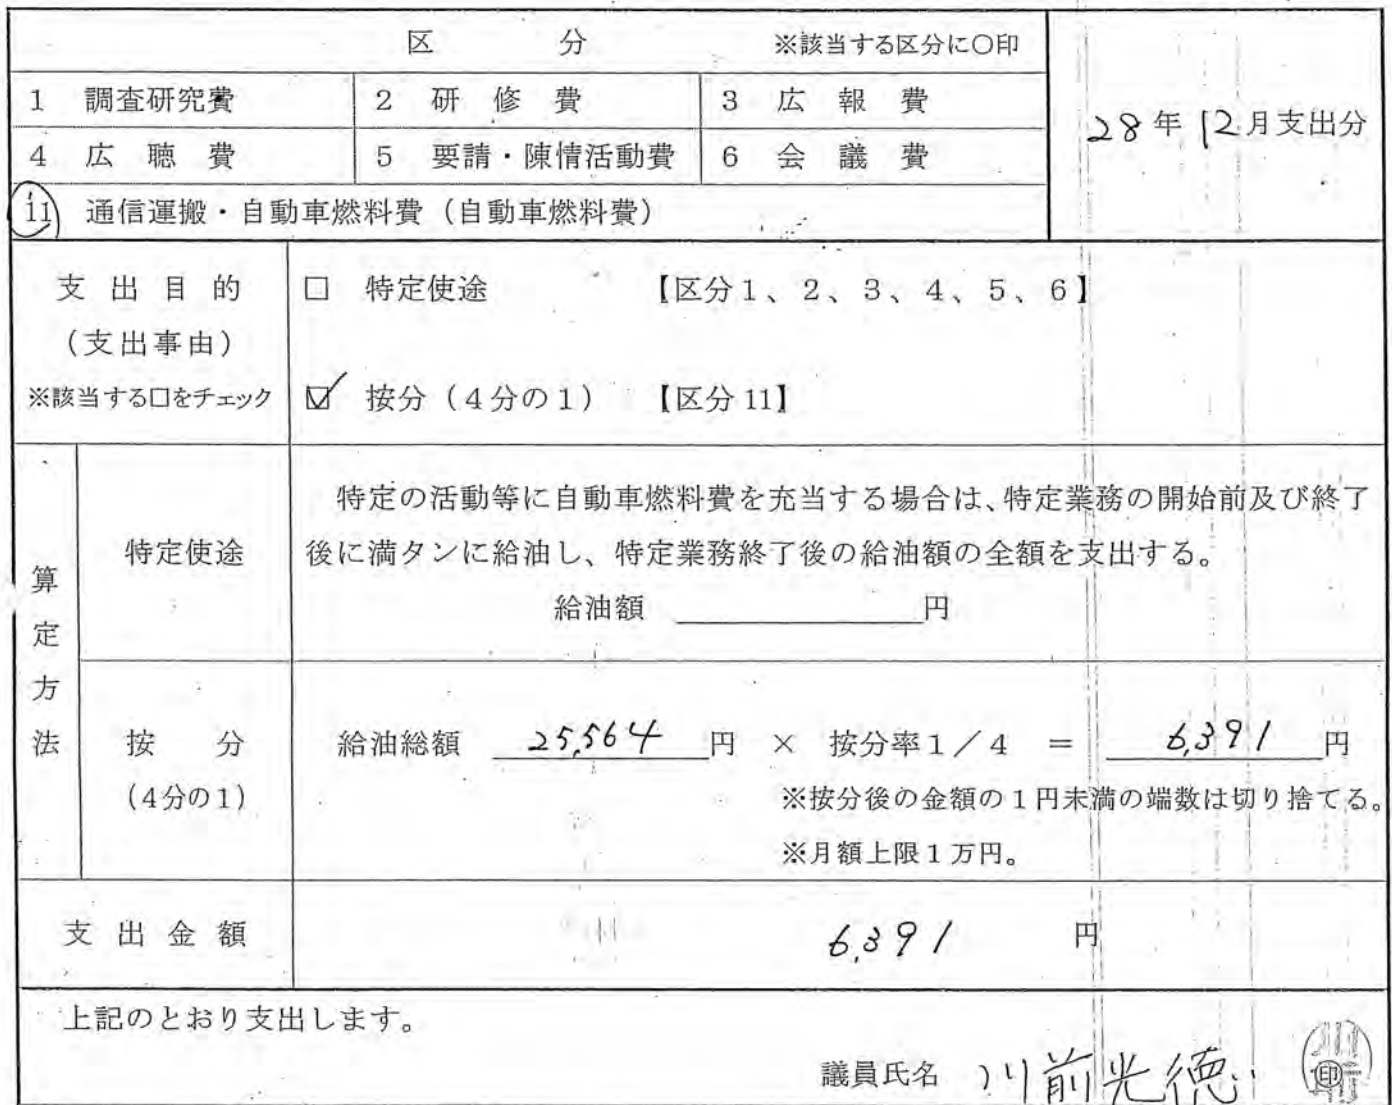 区 分 ※該当する区分に○印
1 調査研究費 2 研 修 費 3 広 報 費
28年12月支出分
4 広 聴 費 5 要請・陳情活動費 6 会 議 費
11 通信運搬・自動車燃料費（自動車燃料費）
支 出 目 的
（支出事由）
※該当する□をチェック
□ 特定使途 【区分1、2、3、4、5、6】
☑ 按分（4分の1） 【区分11】
算定方法
特定使途
特定の活動等に自動車燃料費を充当する場合は、特定業務の開始前及び終了
後に満タンに給油し、特定業務終了後の給油額の全額を支出する。
給油額 円
按 分
（4分の1）
給油総額 25,564 円 × 按分率1／4 ＝ 6,391 円
※按分後の金額の1円未満の端数は切り捨てる。
※月額上限1万円。
支 出 金 額 6,391 円
上記のとおり支出します。
議員氏名 川前光徳 印